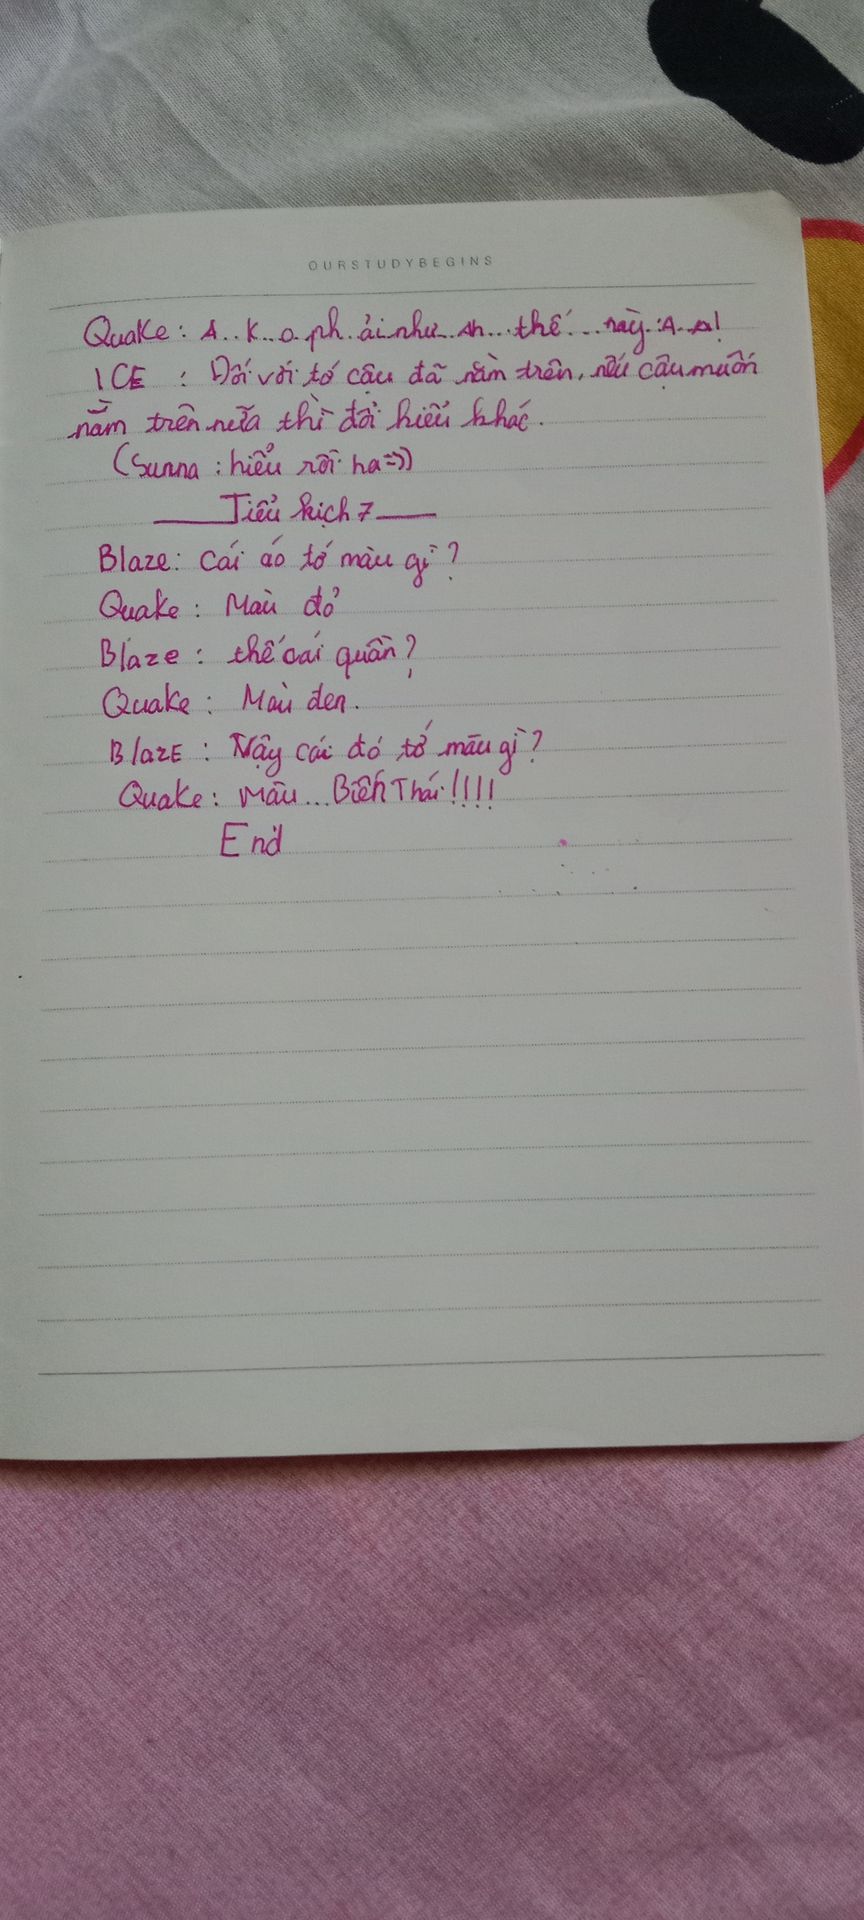 OURSTUDYBEGINS
Quake: A..k..o..ph..ải như..Ah...thế....này..A..A!
ICE : Đối với tớ cậu đã nằm trên, nếu cậu muốn
nằm trên nữa thì đổi kiểu khác.
(Sunna : hiểu rồi ha=))
____Tiểu kịch 7____
Blaze: Cái áo tớ màu gì?
Quake: Màu đỏ
Blaze : thế cái quần?
Quake : Màu đen.
BlazE : Vậy cái đó tớ màu gì?
Quake: Màu... Biến Thái!!!!
End